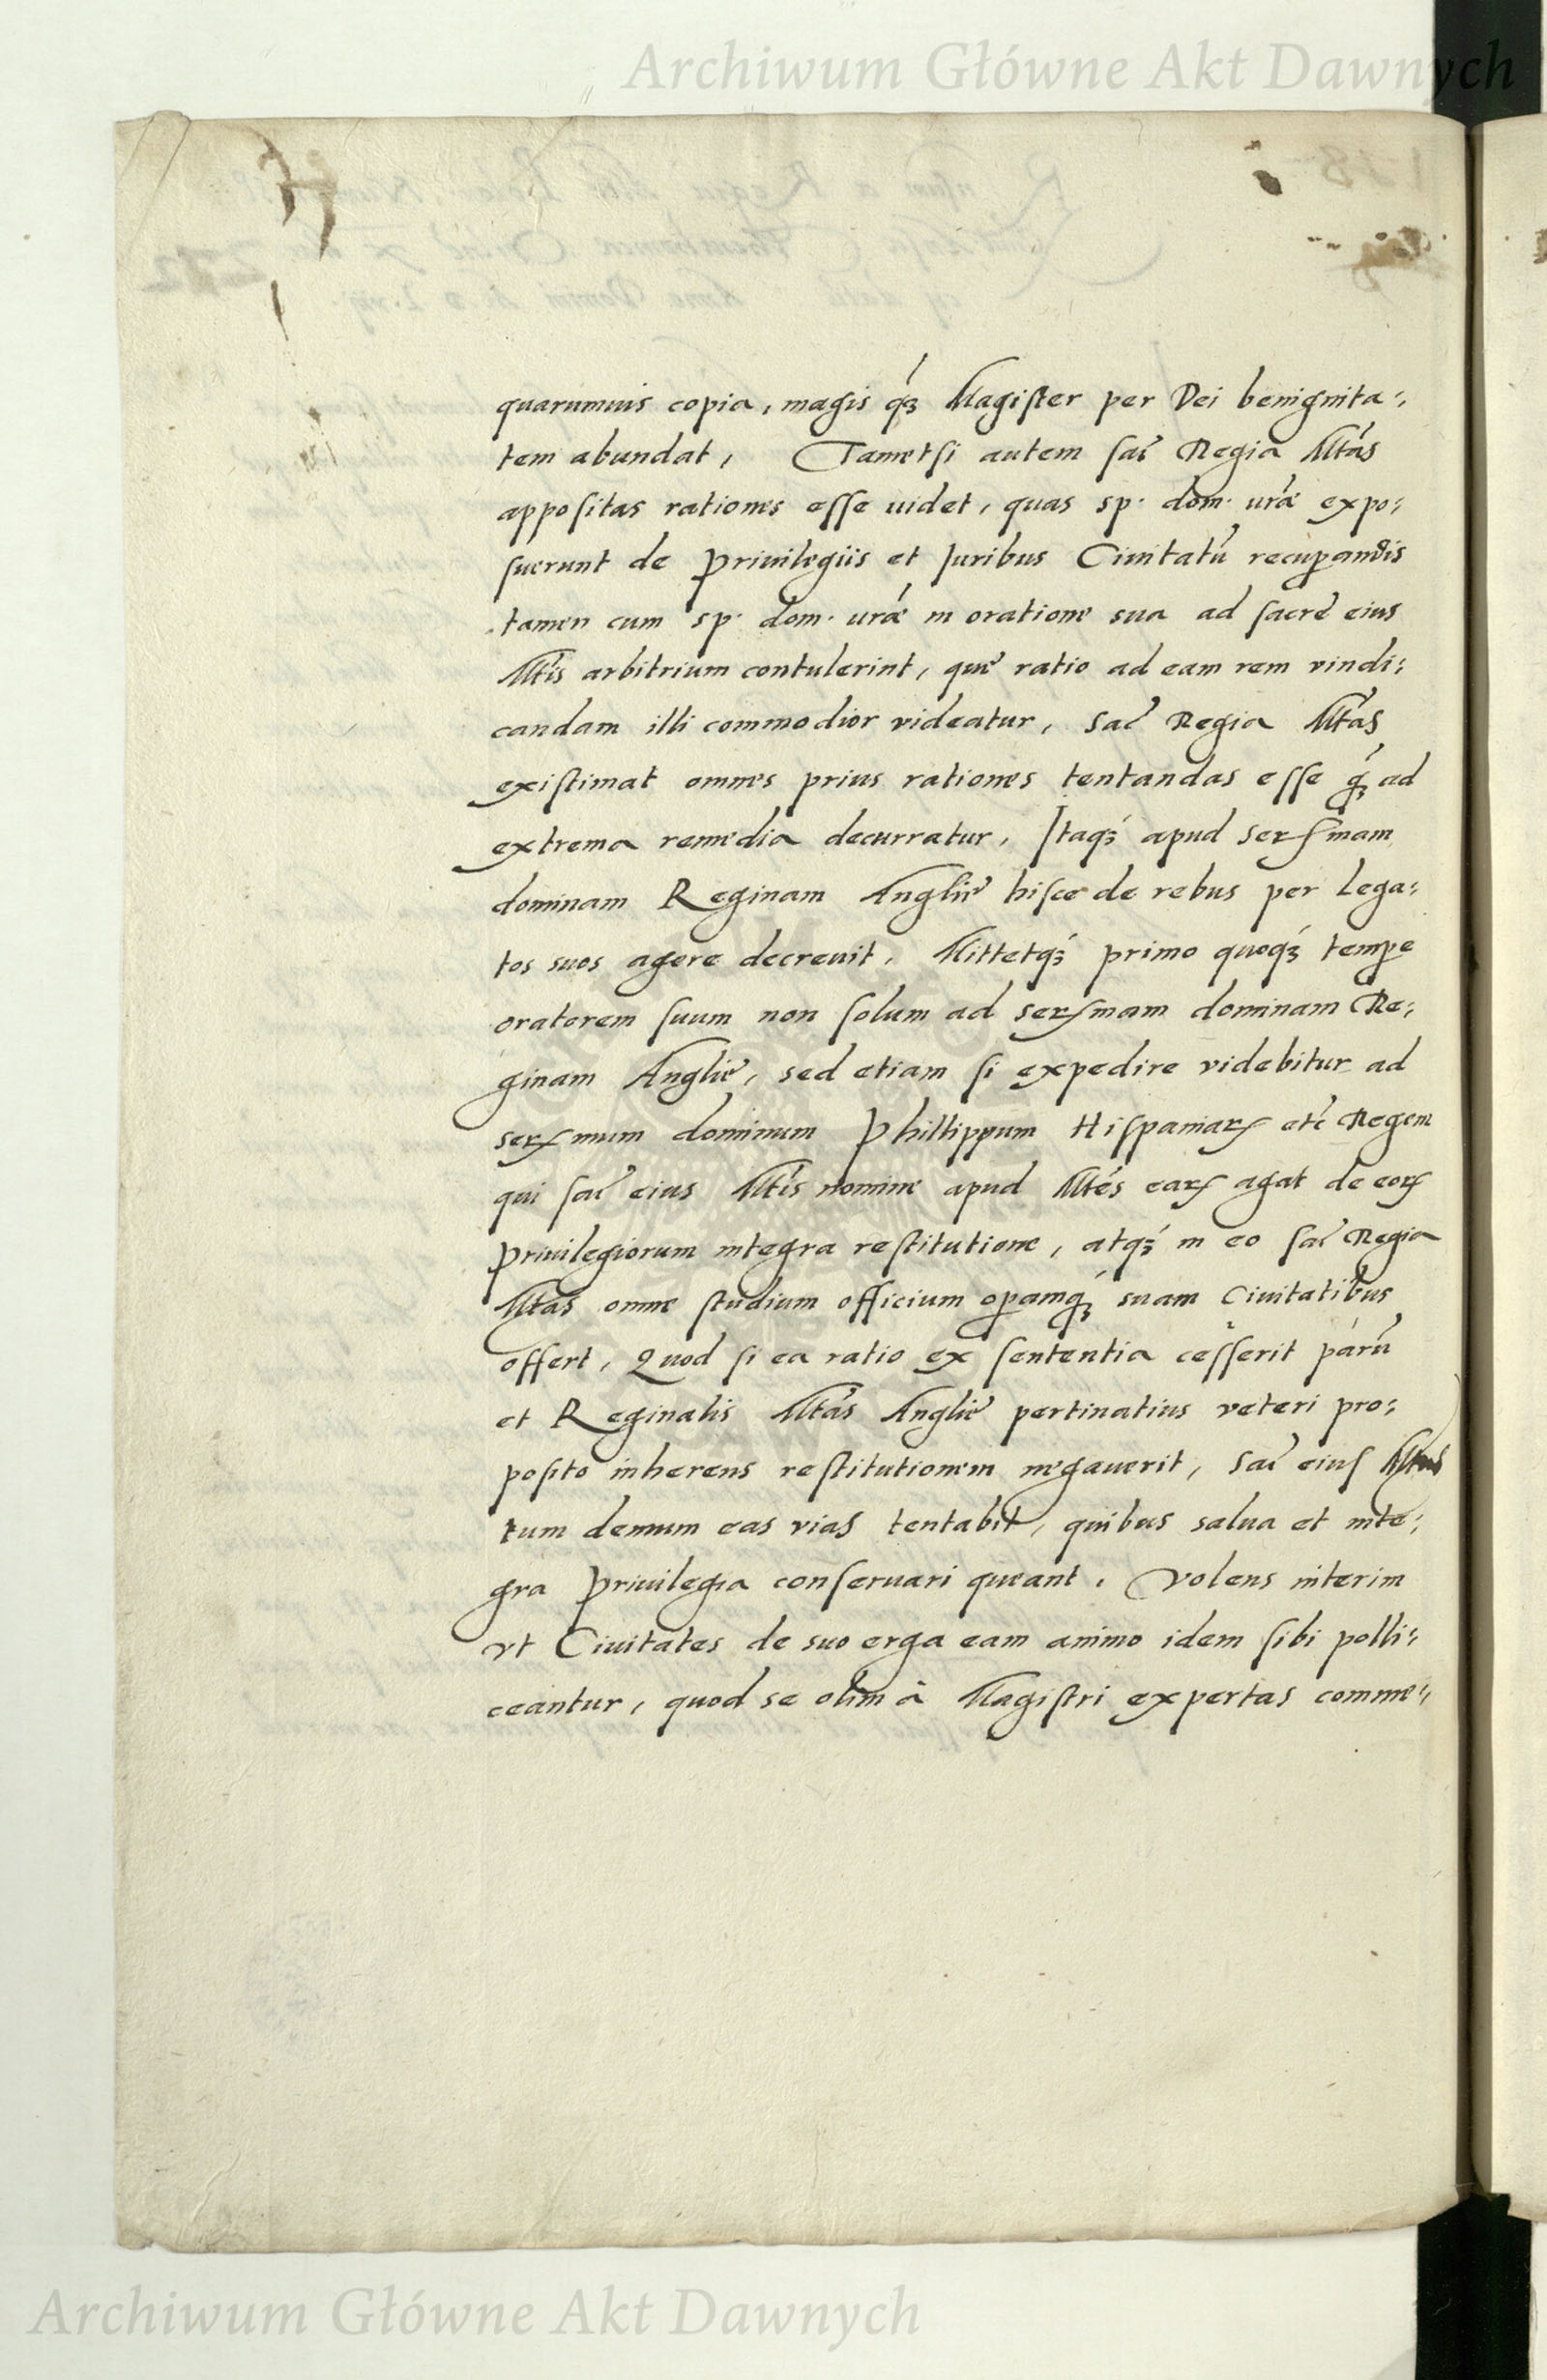 Archiwum Główne Akt Dawnych
quarumuis copia, magis q́ꝫ Magister per Dei benignita:,
tem abundat, Tametsi autem sac̃ Regia Mtás
appositas rationes esse uidet, quas sp. dom. uráe expo:,
suerunt de priuilegiis et Juribus Ciuitatũ recuꝑandis
tamen cum sp. dom. uráe in oratione sua ad sacrę eius
Mtis arbitrium contulerint, quę ratio ad eam rem vindi:,
candam illi commodior videatur, Sac̃ Regia Mtás
existimat omnes prius rationes tentandas esse q́ꝫ ad
extrema remedia decurratur, Itaqꝫ́ apud Serꝭmam
dominam Reginam Anglię hisce de rebus per Lega:,
tos suos agere decreuit, Mittetqꝫ́ primo quoqꝫ́ temꝑe
oratorem suum non solum ad serꝭmam dominam Re:,
ginam Anglię, sed etiam si expedire videbitur ad
serꝭmum dominum Philippum Hispaniaꝝ etc̃ Regem
qui sac̃ eius Mtis nomine apud Mtés eaꝝ agat de eoꝝ
priuilegiorum integra restitutione, atqꝫ́ in eo sac̃ Regia
Mtás omne studium officium oꝑamqꝫ́ suam Ciuitatibus
offert, Quod si ea ratio ex sententia cesserit parũ
et Reginalis Mtás Anglię pertinatius veteri pro:,
posito inherens restitutionem negauerit, Sac̃ eius Mtas
tum demum eas vias tentabit, quibus salua et inte:,
gra priuilegia conseruari queant, Volens interim
vt Ciuitates de suo erga eam animo idem sibi polli:,
ceantur, quod se olim à Magistri expertas comme:,
Archiwum Główne Akt Dawnych